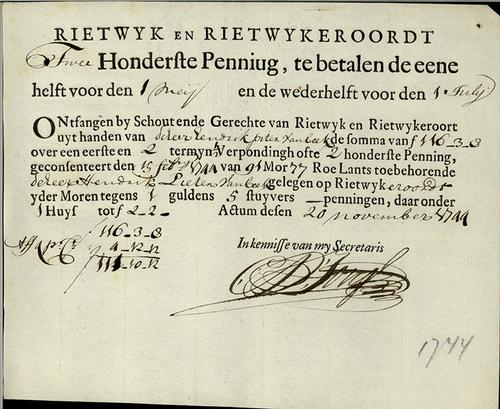 RIETWYK EN RIETWYKEROORDT
Twee Honderste Penniug, te betalen de eene
helft voor den 1 meij en de wederhelft voor den 1 Julij
ONtfangen by Schout ende Gerechte van Rietwyk en Rietwykeroort
uyt handen van de heer Hendrik pieter van de somma van f 116-3-8
over een eerste en 2 termyn Verpondinghofte 2 honderste Penning,
geconsenteert den 15 feb 1744 van 91 Mor 77 Roe Lants toebehorende
de heer Hendrik Pieter gelegen op Rietwykeroordt
yder Moren tegens 1 guldens 5 stuyvers penningen, daar onder
1 Huys tot f 2-2- Actum desen 20 november 1744
116-3-8
4-12-12
111-10-12
In kennisse van my Secretaris
1744